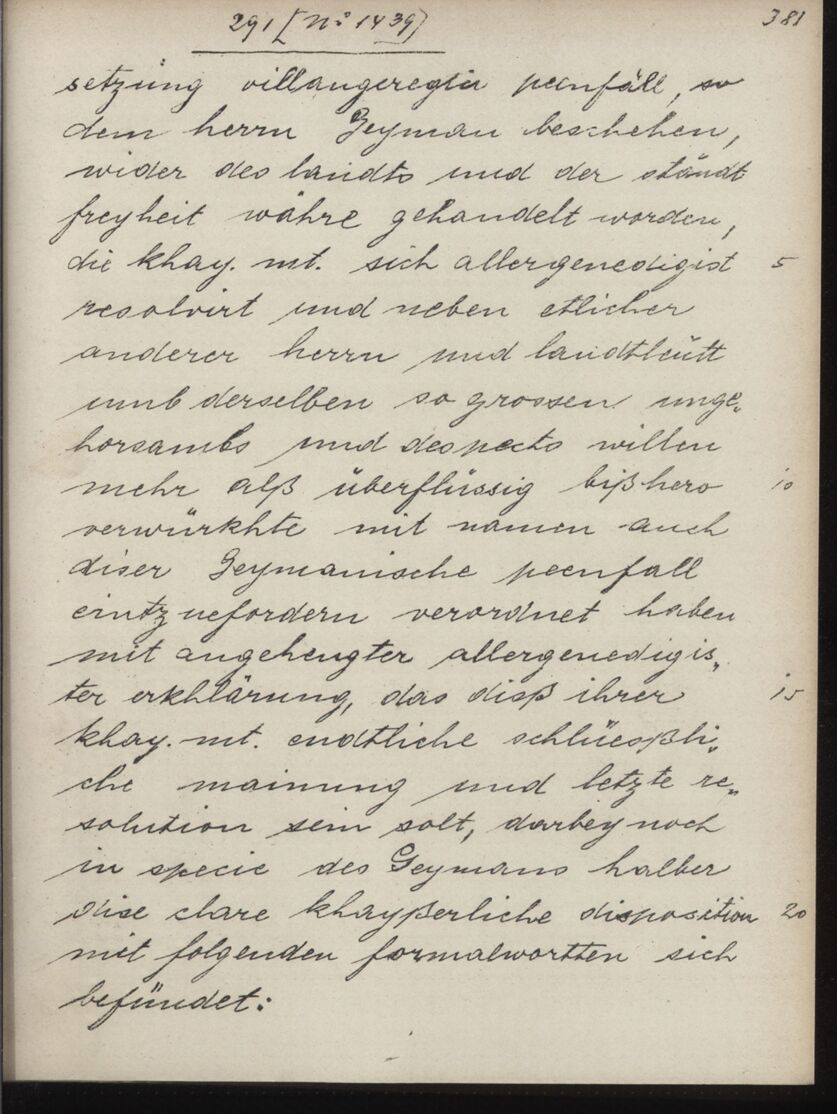 291 [Nº 1439]
381
setzung villangeregter peenfäll, so
dem herrn Geyman beschehen,
wider des landts und der ständt
freyheit währe gehandelt worden,
die khay. mt. sich allergenedigist 5
resolvirt und neben etlicher
anderer herrn und landtleütt
umb derselben so grossen unge„
horsambs und despects willen
mehr alß überflüssig bißhero 10
verwürkhte mit namen auch
diser Geymanische peenfall
eintzuefordern verordnet haben
mit angehengter allergenedigis„
ter erkhlärung, das diß ihrer 15
khay. mt. endtliche schlüeßli„
che mainung und letzte re„
solution sein solt, darbey noch
in specie des Geymans halber
dise clare khayßerliche disposition 20
mit folgenden formalwortten sich
befündet: